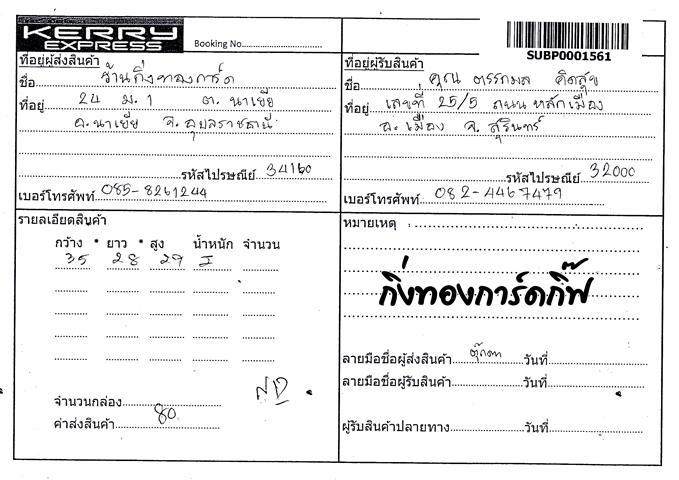 KERRY
EXPRESS
Booking No.
SUBP0001561
ที่อยู่ผู้ส่งสินค้า
ชื่อ ร้านกิ่งทองการ์ด
ที่อยู่ 24 ม.1 ต. นาเยีย
อ.นาเยีย จ.อุบลราชธานี
รหัสไปรษณีย์ 34160
เบอร์โทรศัพท์ 085-8261244
ที่อยู่ผู้รับสินค้า
ชื่อ คุณ ตรรกมล คิดสุข
ที่อยู่ เลขที่ 25/5 ถนน หลักเมือง
อ. เมือง จ. สุรินทร์
รหัสไปรษณีย์ 32000
เบอร์โทรศัพท์ 082-4467479
รายละเอียดสินค้า
กว้าง * ยาว * สูง น้ำหนัก จำนวน
35 28 29
จำนวนกล่อง
ค่าส่งสินค้า 80
หมายเหตุ :
กิ่งทองการ์ดกิ๊ฟ
ลายมือชื่อผู้ส่งสินค้า ตุ๊กตา วันที่
ลายมือชื่อผู้รับสินค้า วันที่
ผู้รับสินค้าปลายทาง วันที่